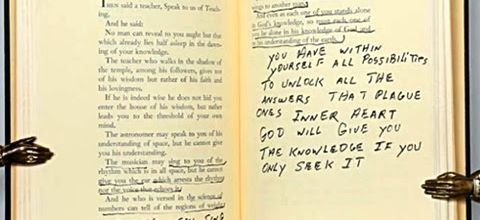 THEN said a teacher, Speak to us of Teach-
ing.
And he said:
No man can reveal to you aught but that
which already lies half asleep in the dawn-
ing of your knowledge.
The teacher who walks in the shadow of
the temple, among his followers, gives not
of his wisdom but rather of his faith and
his lovingness.
If he is indeed wise he does not bid you
enter the house of his wisdom, but rather
leads you to the threshold of your own
mind.
The astronomer may speak to you of his
understanding of space, but he cannot give
you his understanding.
The musician may sing to you of the
rhythm which is in all space, but he cannot
give you the ear which arrests the rhythm
nor the voice that echoes it.
And he who is versed in the science of
numbers can tell of the regions of weight
wings to another man.
And even as each one of you stands alone
in God's knowledge, so must each one of
you be alone in his knowledge of God and
in his understanding of the earth.
YOU HAVE WITHIN
YOURSELF ALL POSSIBILITIES
TO UNLOCK ALL THE
ANSWERS THAT PLAGUE
ONES INNER HEART
GOD WILL GIVE YOU
THE KNOWLEDGE IF YOU
ONLY SEEK IT